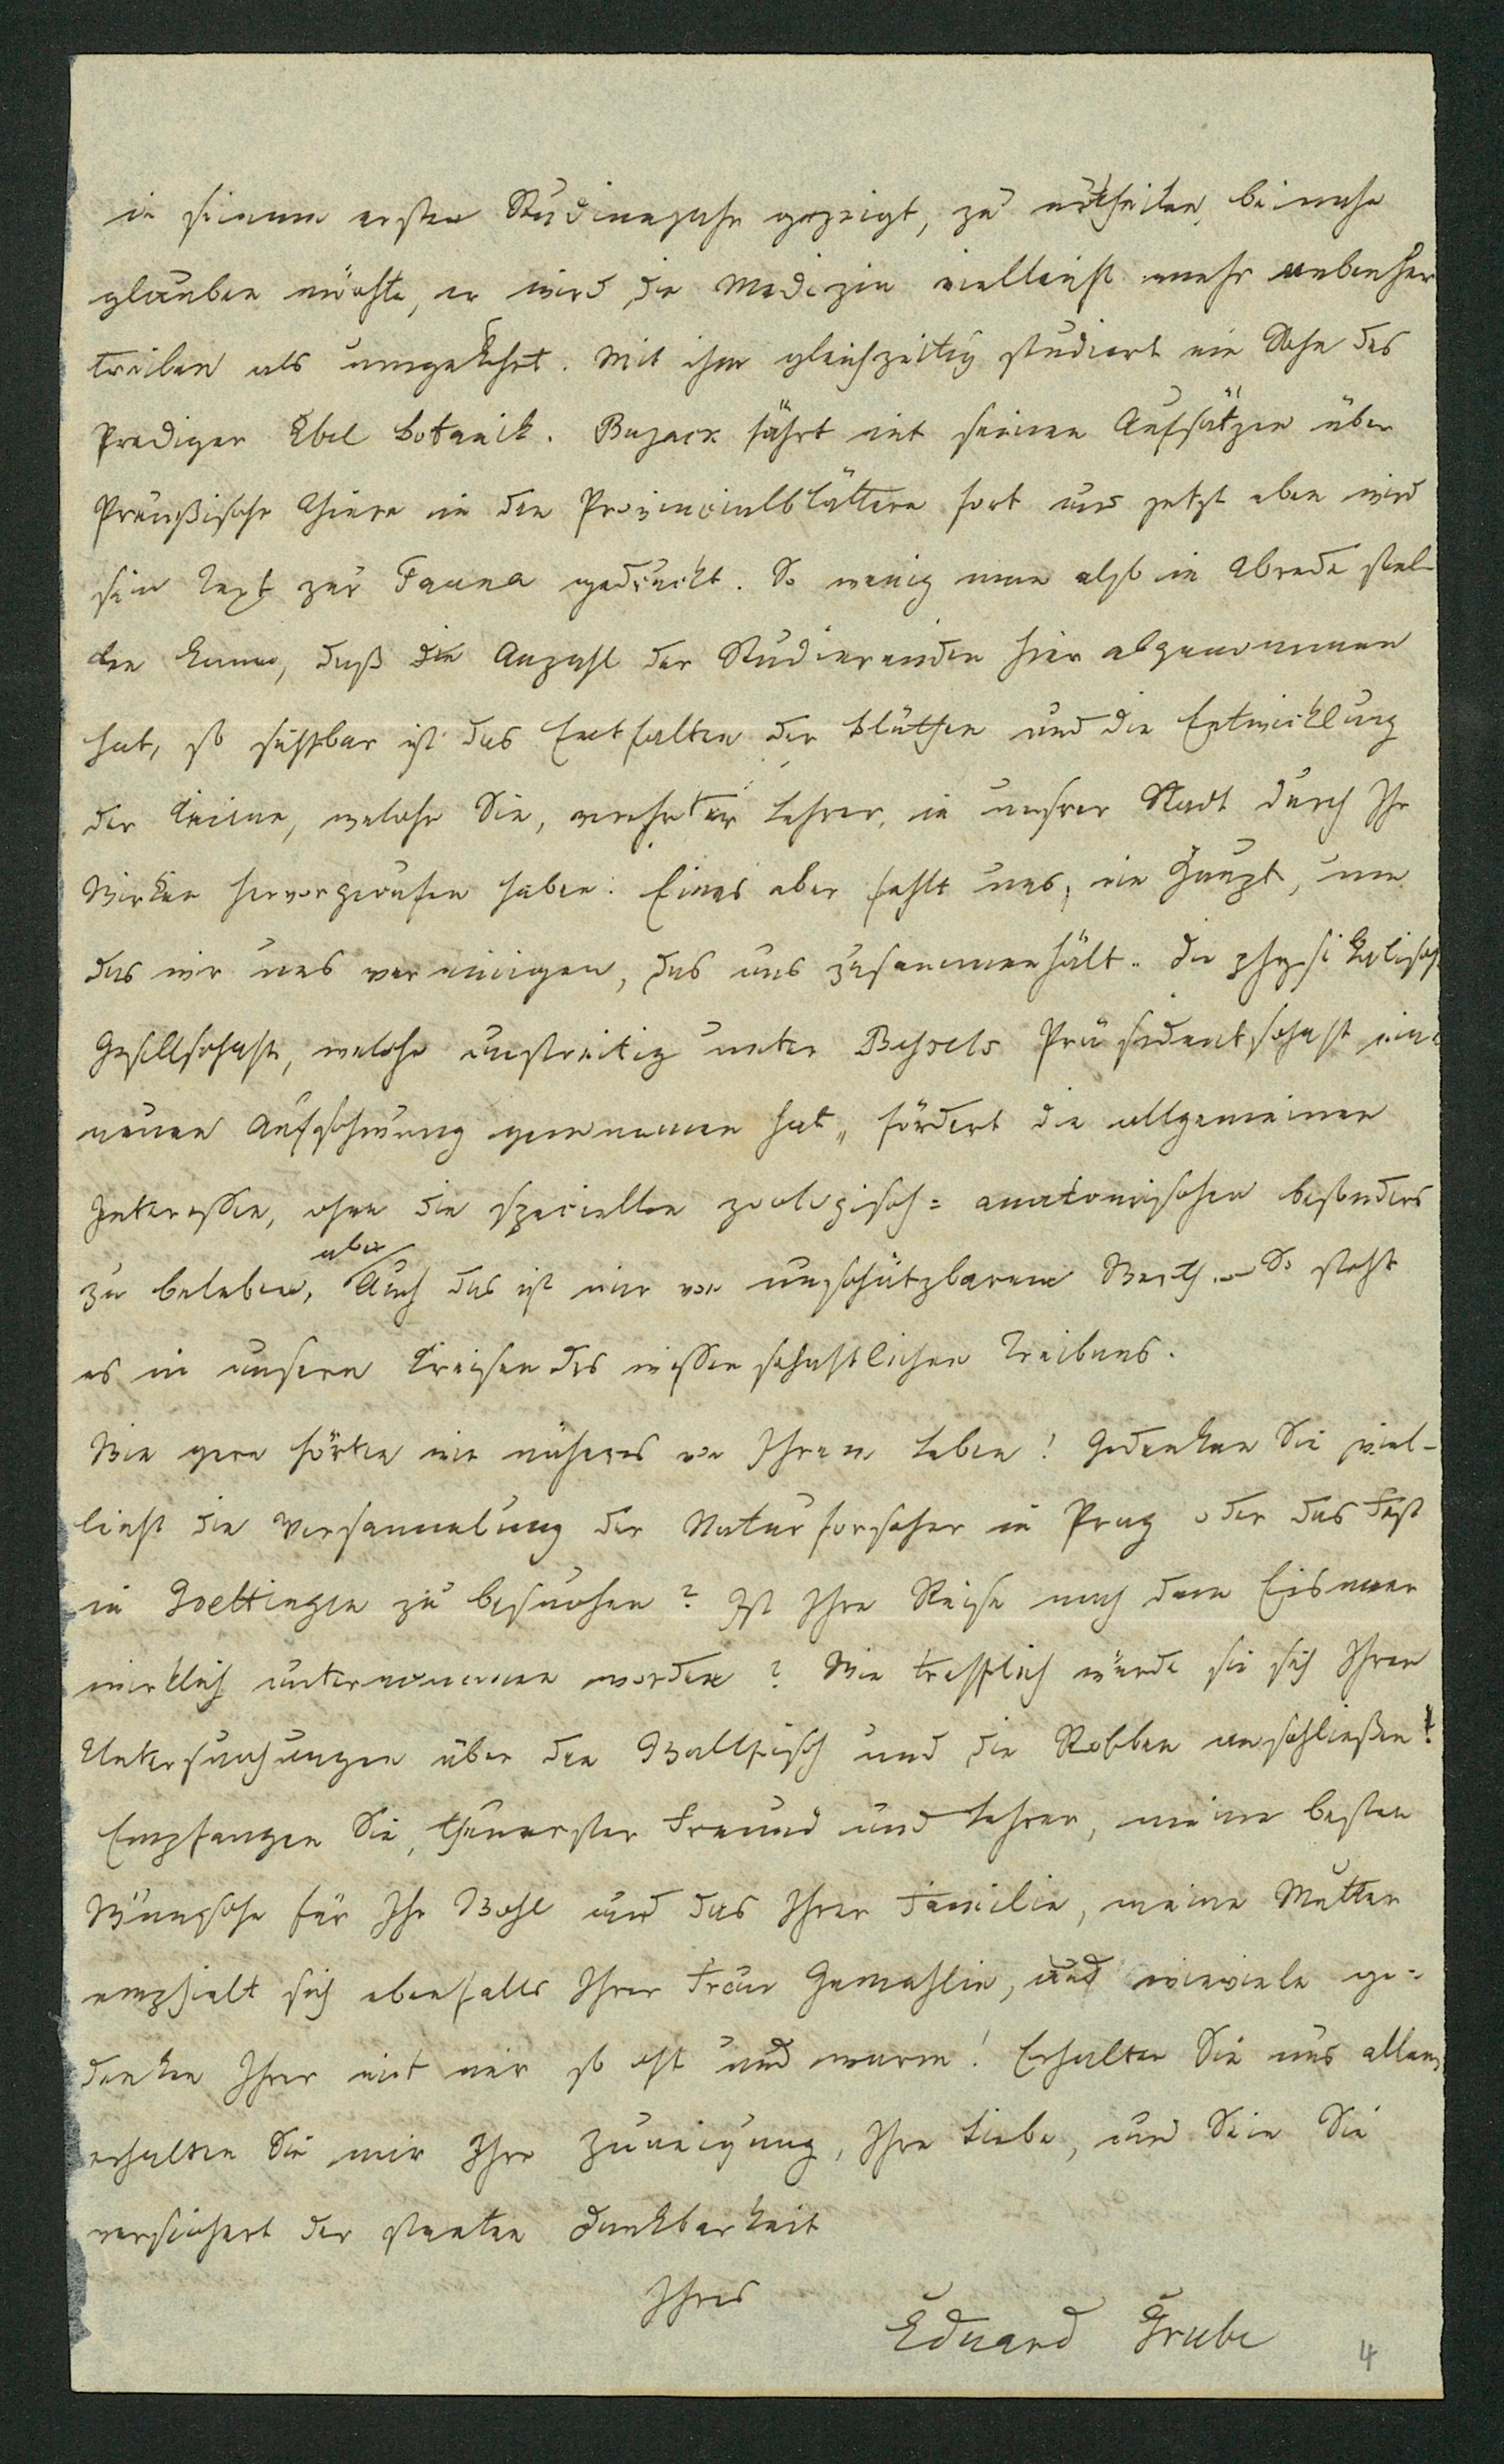 in seinem ersten Studienjahr gezeigt, zu urtheilen, beinahe
glauben möchte, er wird die Medizin vielleicht mehr nebenher
treiben als umgekehrt. Mit ihm gleichzeitig studiert ein Sohn des
Prediger Ebel Botanik. Bujack fährt mit seinen Aufsätzen über
Preußische Thiere in den Provincialblättern fort und jetzt eben wird
sein Text zur Fauna gedruckt. So wenig man also in Abrede stel-
len kann, daß die Anzahl der Studierenden hier abgenommen
hat, so sichtbar ist das Entfalten der Blüthen und die Entwicklung
der Keime, welche Sie, verehrter Lehrer, in unsrer Stadt durch Ihr
Wirken hervorgerufen haben: Eines aber fehlt uns, ein Haupt, um
das wir uns vereinigen, das uns zusammenhält. Die physikalische
Gesellschaft, welche unstreitig unter Bessels Präsidentschaft einen
neuen Aufschwung genommen hat, fördert die allgemeinen
Interessen, ohne die speciellen zoologisch-anatomischen besonders
zu beleben, aber Auch das ist mir von unschätzbarem Werth. – So steht
es in unsern Kreisen des wissenschaftlichen Treibens.
Wie gern hörten wir näheres von Ihrem Leben! Gedenken Sie viel-
leicht die Versammlung der Naturforscher in Prag oder das Fest
in Goettingen zu besuchen? Ist Ihre Reise nach dem Eismeer
wirklich unternommen worden? Wie trefflich würde sie sich Ihren
Untersuchungen über den Wallfisch und die Robben anschließen!
Empfangen Sie, theuerster Freund und Lehrer, meine besten
Wünsche für Ihr Wohl und das Ihrer Familie, meine Mutter
empfielt sich ebenfalls Ihrer Frau Gemahlin, und wieviele ge-
denken Ihrer mit mir so oft und warm! Erhalten Sie uns allen,
erhalten Sie mir Ihre Zuneigung, Ihre Liebe, und Sein Sie
versichert der steten Dankbarkeit
Ihres
Eduard Grube
4